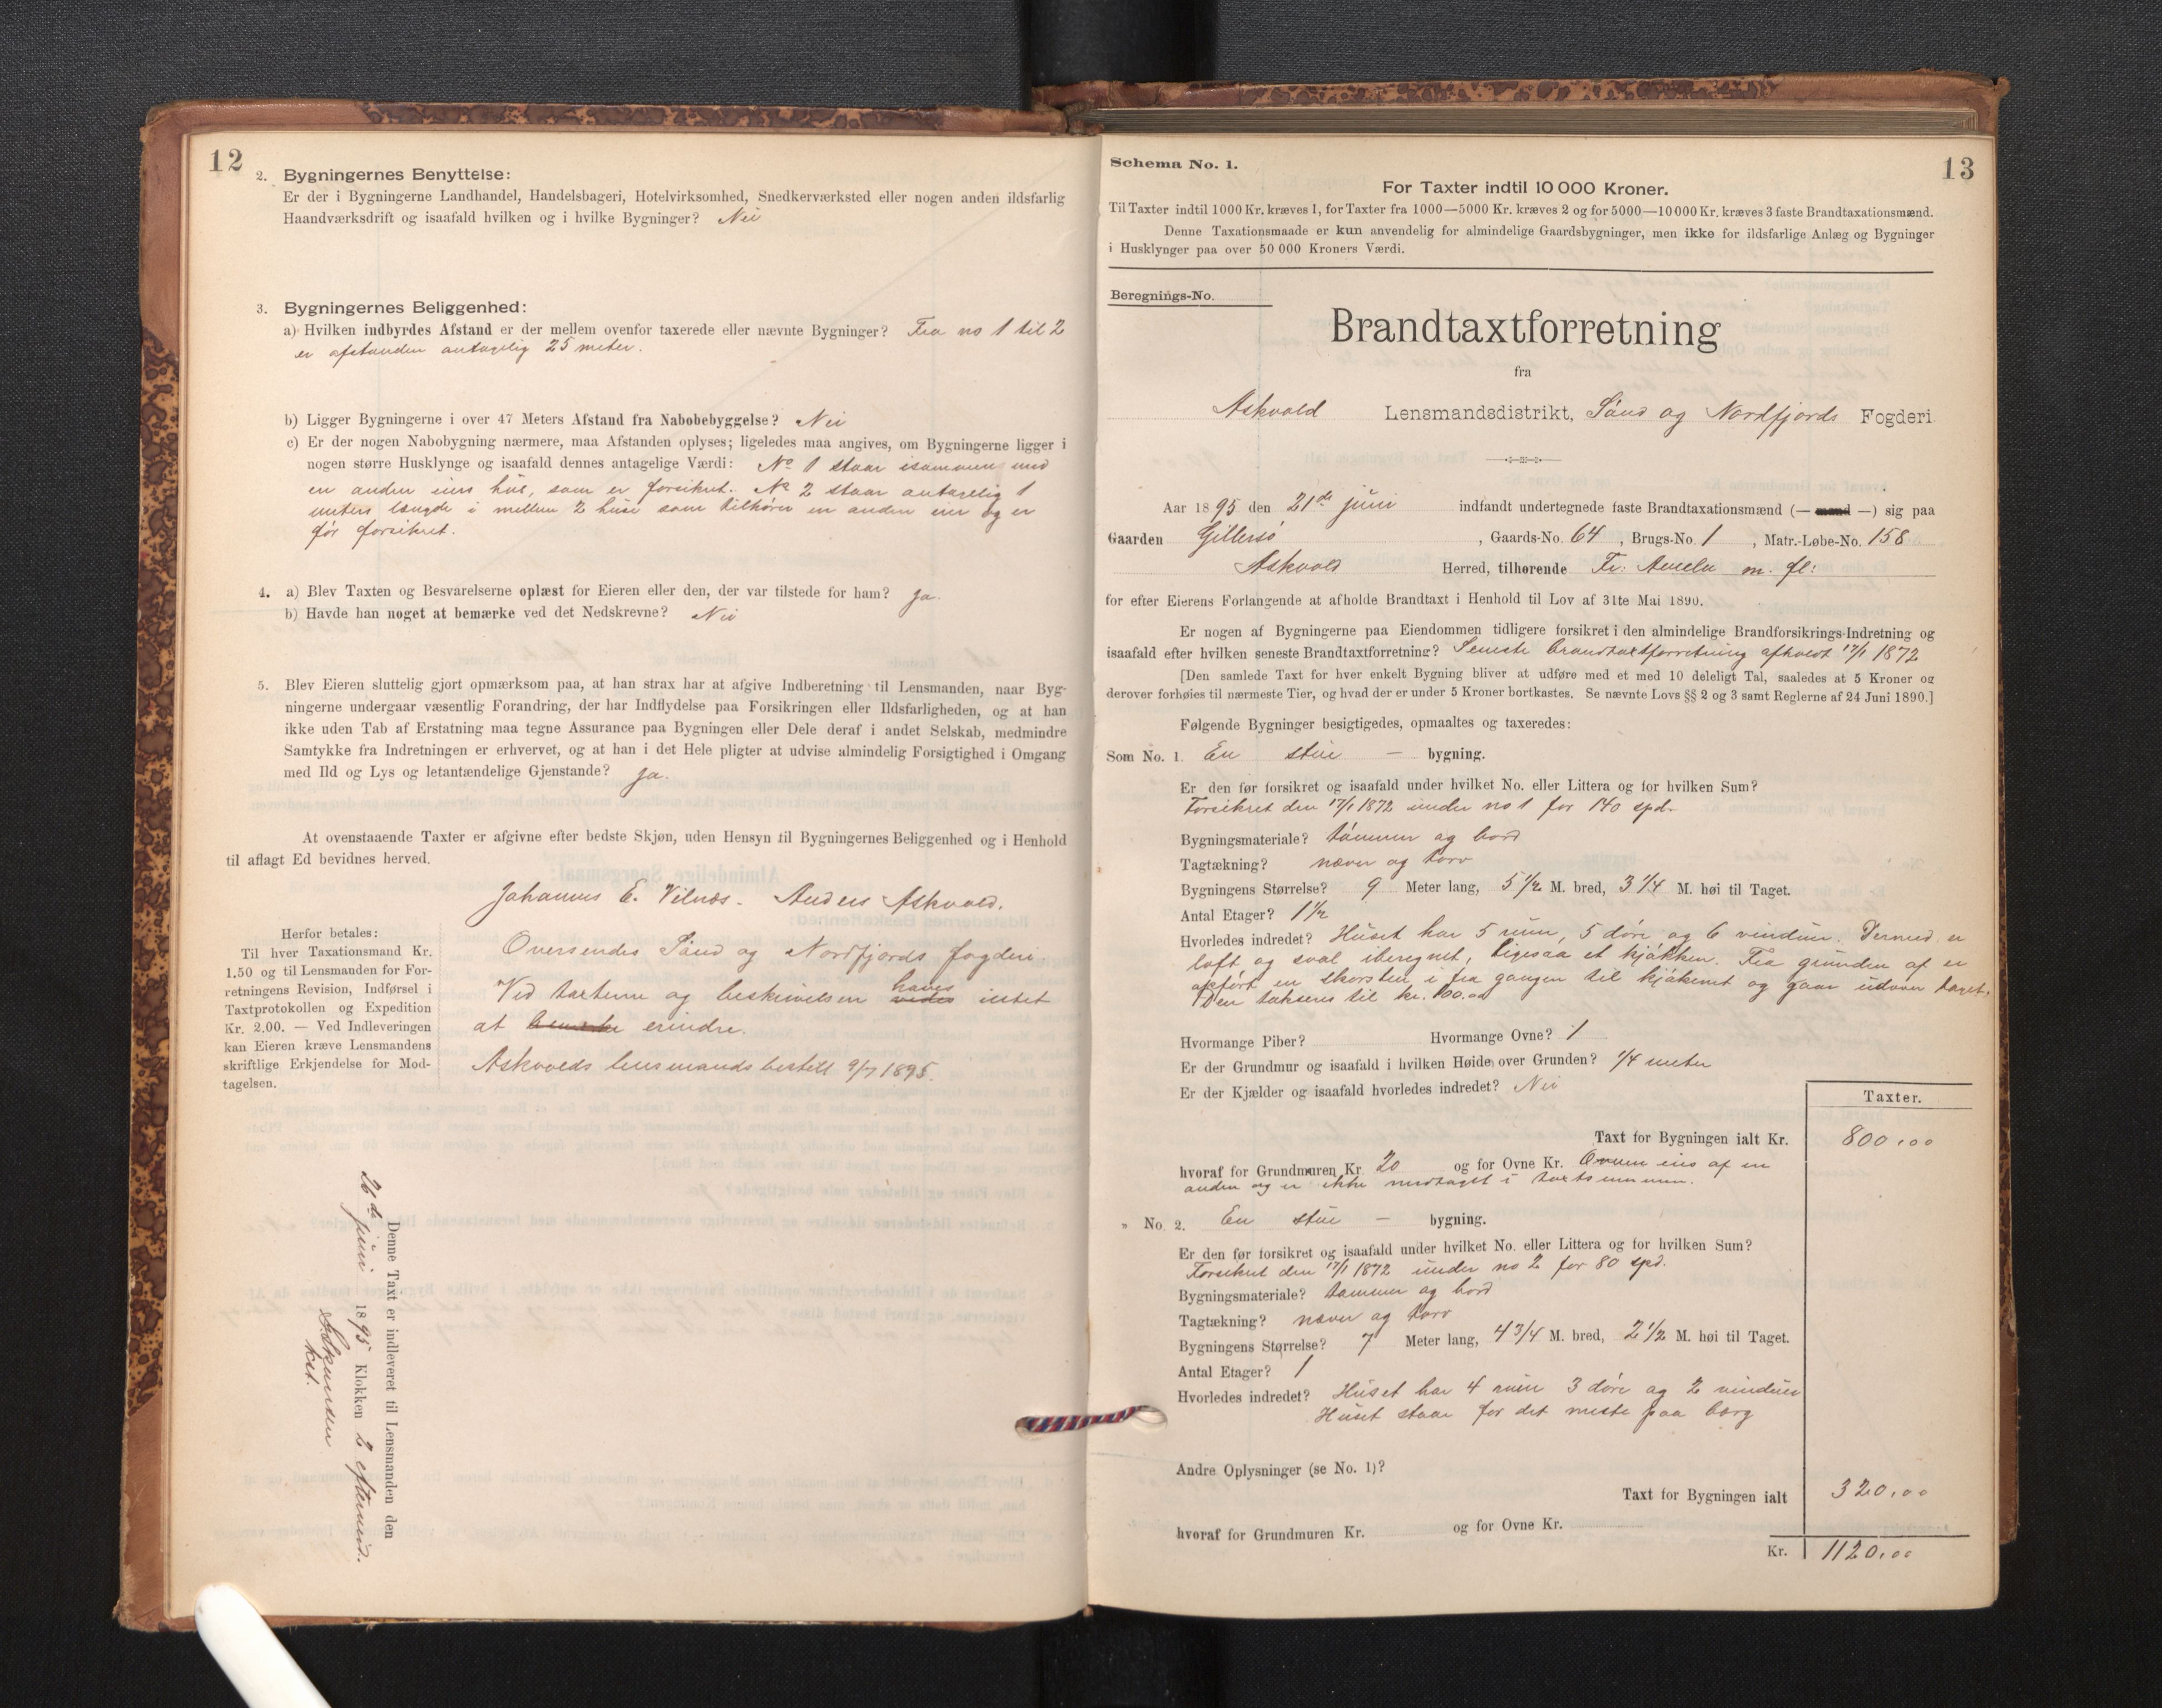 12
2. Bygningernes Benyttelse:
Er der i Bygningerne Landhandel, Handelsbageri, Hotelvirksomhed, Snedkerværksted eller nogen anden ildsfarlig
Haandværksdrift og isaafald hvilken og i hvilke Bygninger? Nei
3. Bygningernes Beliggenhed:
a) Hvilken indbyrdes Afstand er der mellem ovenfor taxerede eller nævnte Bygninger? Fra no 1 til 2
er afstanden antagelig 25 meter.
b) Ligger Bygningerne i over 47 Meters Afstand fra Nabobebyggelse? Nei
c) Er der nogen Nabobygning nærmere, maa Afstanden oplyses; ligeledes maa angives, om Bygningerne ligger i
nogen større Husklynge og isaafald dennes antagelige Værdi: No 1 staar isammen med
en anden eiers hus, som er forsikret. No 2 staar antagelig 1
meters længde i mellem 2 huse som tilhører en anden eier og er
før forsikret.
4. a) Blev Taxten og Besvarelserne oplæst for Eieren eller den, der var tilstede for ham? Ja.
b) Havde han noget at bemærke ved det Nedskrevne? Nei
5. Blev Eieren sluttelig gjort opmærksom paa, at han strax har at afgive Indberetning til Lensmanden, naar Byg-
ningerne undergaar væsentlig Forandring, der har Indflydelse paa Forsikringen eller Ildsfarligheden, og at han
ikke uden Tab af Erstatning maa tegne Assurance paa Bygningen eller Dele deraf i andet Selskab, medmindre
Samtykke fra Indretningen er erhvervet, og at han i det Hele pligter at udvise almindelig Forsigtighed i Omgang
med Ild og Lys og letantændelige Gjenstande? Ja.
At ovenstaaende Taxter er afgivne efter bedste Skjøn, uden Hensyn til Bygningernes Beliggenhed og i Henhold
til aflagt Ed bevidnes herved.
Johannes E. Vilnæs. Anders Askvold.
Herfor betales:
Til hver Taxationsmand Kr.
1.50 og til Lensmanden for For-
retningens Revision, Indførsel i
Taxtprotokollen og Expedition
Kr. 2.00. — Ved Indleveringen
kan Eieren kræve Lensmandens
skriftlige Erkjendelse for Mod-
tagelsen.
Oversendes Sønd og Nordfjords fogderi.
Ved taxterne og beskrivelsen haves intet
at erindre.
Askvolds lensmandsbestill 9/7 1895.
Denne Taxt er indleveret til Lensmanden den
26de juni 1895 Klokken 2 eftermid.
kst.
Schema No. 1.
13
For Taxter indtil 10 000 Kroner.
Til Taxter indtil 1000 Kr. kræves 1, for Taxter fra 1000—5000 Kr. kræves 2 og for 5000—10 000 Kr. kræves 3 faste Brandtaxationsmænd.
Denne Taxationsmaade er kun anvendelig for almindelige Gaardsbygninger, men ikke for ildsfarlige Anlæg og Bygninger
i Husklynger paa over 50 000 Kroners Værdi.
Beregnings-No.
Brandtaxtforretning
fra
Askvold Lensmandsdistrikt, Sønd og Nordfjords Fogderi
Aar 1895 den 21de juni indfandt undertegnede faste Brandtaxationsmænd (— mand —) sig paa
Gaarden Gillersø, Gaards-No. 64, Brugs-No. 1, Matr.-Løbe-No. 158
Askvold Herred, tilhørende Fr: m. fl:
for efter Eierens Forlangende at afholde Brandtaxt i Henhold til Lov af 31te Mai 1890.
Er nogen af Bygningerne paa Eiendommen tidligere forsikret i den almindelige Brandforsikrings-Indretning og
isaafald efter hvilken seneste Brandtaxtforretning? Seneste brandtaxtforretning afholdt 17/1 1872
[Den samlede Taxt for hver enkelt Bygning bliver at udføre med et med 10 deleligt Tal, saaledes at 5 Kroner og
derover forhøies til nærmeste Tier, og hvad der er under 5 Kroner bortkastes. Se nævnte Lovs §§ 2 og 3 samt Reglerne af 24 Juni 1890.]
Følgende Bygninger besigtigedes, opmaaltes og taxeredes:
Som No. 1. En stue — bygning.
Er den før forsikret og isaafald under hvilket No. eller Littera og for hvilken Sum?
Forsikret den 17/1 1872 under no 1 for 140 spd.
Bygningsmateriale? tømmer og bord
Tagtækning? næver og torv
Bygningens Størrelse? 9 Meter lang, 5 1/2 M. bred, 3 1/4 M. høi til Taget.
Antal Etager? 1 1/2
Hvorledes indredet? Huset har 5 rum, 5 døre og 6 vinduer. Dermed er
loft og sval iberegnet, ligesaa et kjøkken. Fra grunden af er
opført en skorsten i fra gangen til kjøkenet og gaar udover taget.
Den takseres til kr. 100.00
Hvormange Piber? Hvormange Ovne? 1
Er der Grundmur og isaafald i hvilken Høide over Grunden? 1/4 meter
Er der Kjælder og isaafald hvorledes indredet? Nei
Taxter.
Taxt for Bygningen ialt Kr. 800,00
hvoraf for Grundmuren Kr. 20 og for Ovne Kr. Ovnen eies af en
anden og er ikke medtaget i taxtsummen.
" No. 2. En stue — bygning.
Er den før forsikret og isaafald under hvilket No. eller Littera og for hvilken Sum?
Forsikret den 17/1 1872 under no 2 for 80 spd.
Bygningsmateriale? tømmer og bord
Tagtækning? næver og torv
Bygningens Størrelse? 7 Meter lang, 4 3/4 M. bred, 2 1/2 M. høi til Taget.
Antal Etager? 1
Hvorledes indredet? Huset har 4 rum 3 døre og 2 vinduer
Huset staar for det meste paa berg
Andre Oplysninger (se No. 1)?
Taxt for Bygningen ialt 320,00
hvoraf for Grundmuren Kr. og for Ovne Kr.
Kr. 1120,00